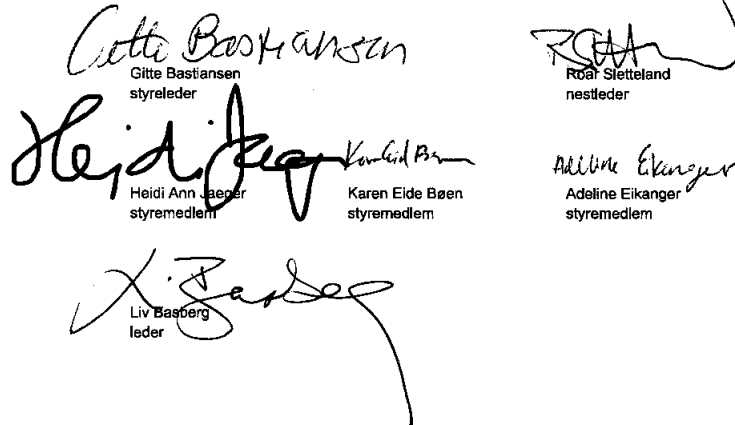 Gitte Bastiansen
Gitte Bastiansen
styreleder
Roar Sletteland
nestleder
Heidi Jaeger
Heidi Ann Jaeger
styremedlem
Karen Eide Bøen
styremedlem
Adeline Eikanger
Adeline Eikanger
styremedlem
Liv Basberg
Liv Basberg
leder